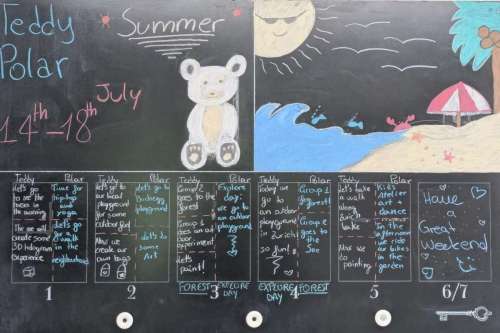 Teddy
Polar
Summer
14th-18th July
Teddy
Let's go
to see the
bees in
the morning
Then we will
create some
3D Hologram
Experience
Polar
Time for
hiphop
and
yoga
Let's
go for
a walk
in the
neighborhood
Teddy
Let's go to
our local
playground
for some
outdoor fun!
Now we
create our
own bags
Polar
Let's go to
playground
Let's do
some
Art
Teddy
Group 2
goes to the
forest
Group 1
does an out
door
experiment
Let's
paint!
Polar
Explore
day:
we go to
an outdoor
playground
Teddy
Today we
go to
an outdoor
playground
in Zurich!
so fun!
Polar
Group 1
goes to the
forest!
Group 2
goes to
the
Zoo
Teddy
Let's take
a walk
along
Zurich
lake
Now we
do
painting
Polar
Kids
Atelier
art +
dance
In the
afternoon
we ride
our bikes
in the
garden
Have
a
Great
Weekend
FOREST EXPLORE DAY
EXPLORE DAY FOREST
1 2 3 4 5 6/7